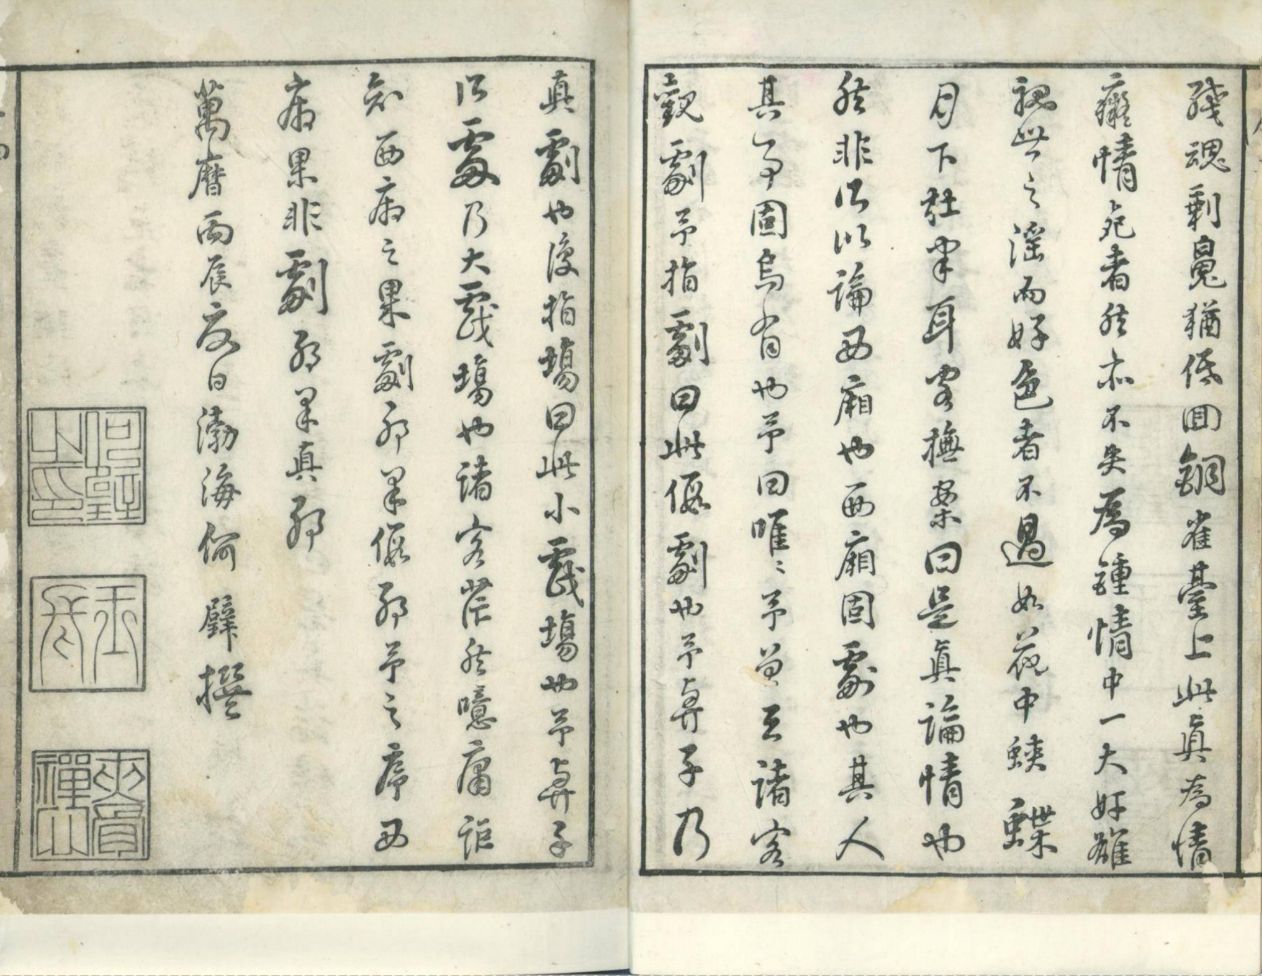 殘魂剩鬼猶低回銅雀臺上此真為情
癡情死者然亦不失為鍾情中一大奸雄
視世之淫而好色者不過如花中蛺蝶
月下耳客撫案曰是真論情也
然非所以論西廂也西廂固劇也其人
其事固烏有也予曰唯〻予曾與諸客
觀劇予指劇曰此假劇也予與子乃
真劇也復指場曰此小戲場也予與子
所處乃大戲場也諸客茫然噫庸詎
知西廂之果劇耶果假耶予之序西
廂果非劇耶果真耶
萬曆丙辰夏日渤海何璧撰
何璧之印
玉長